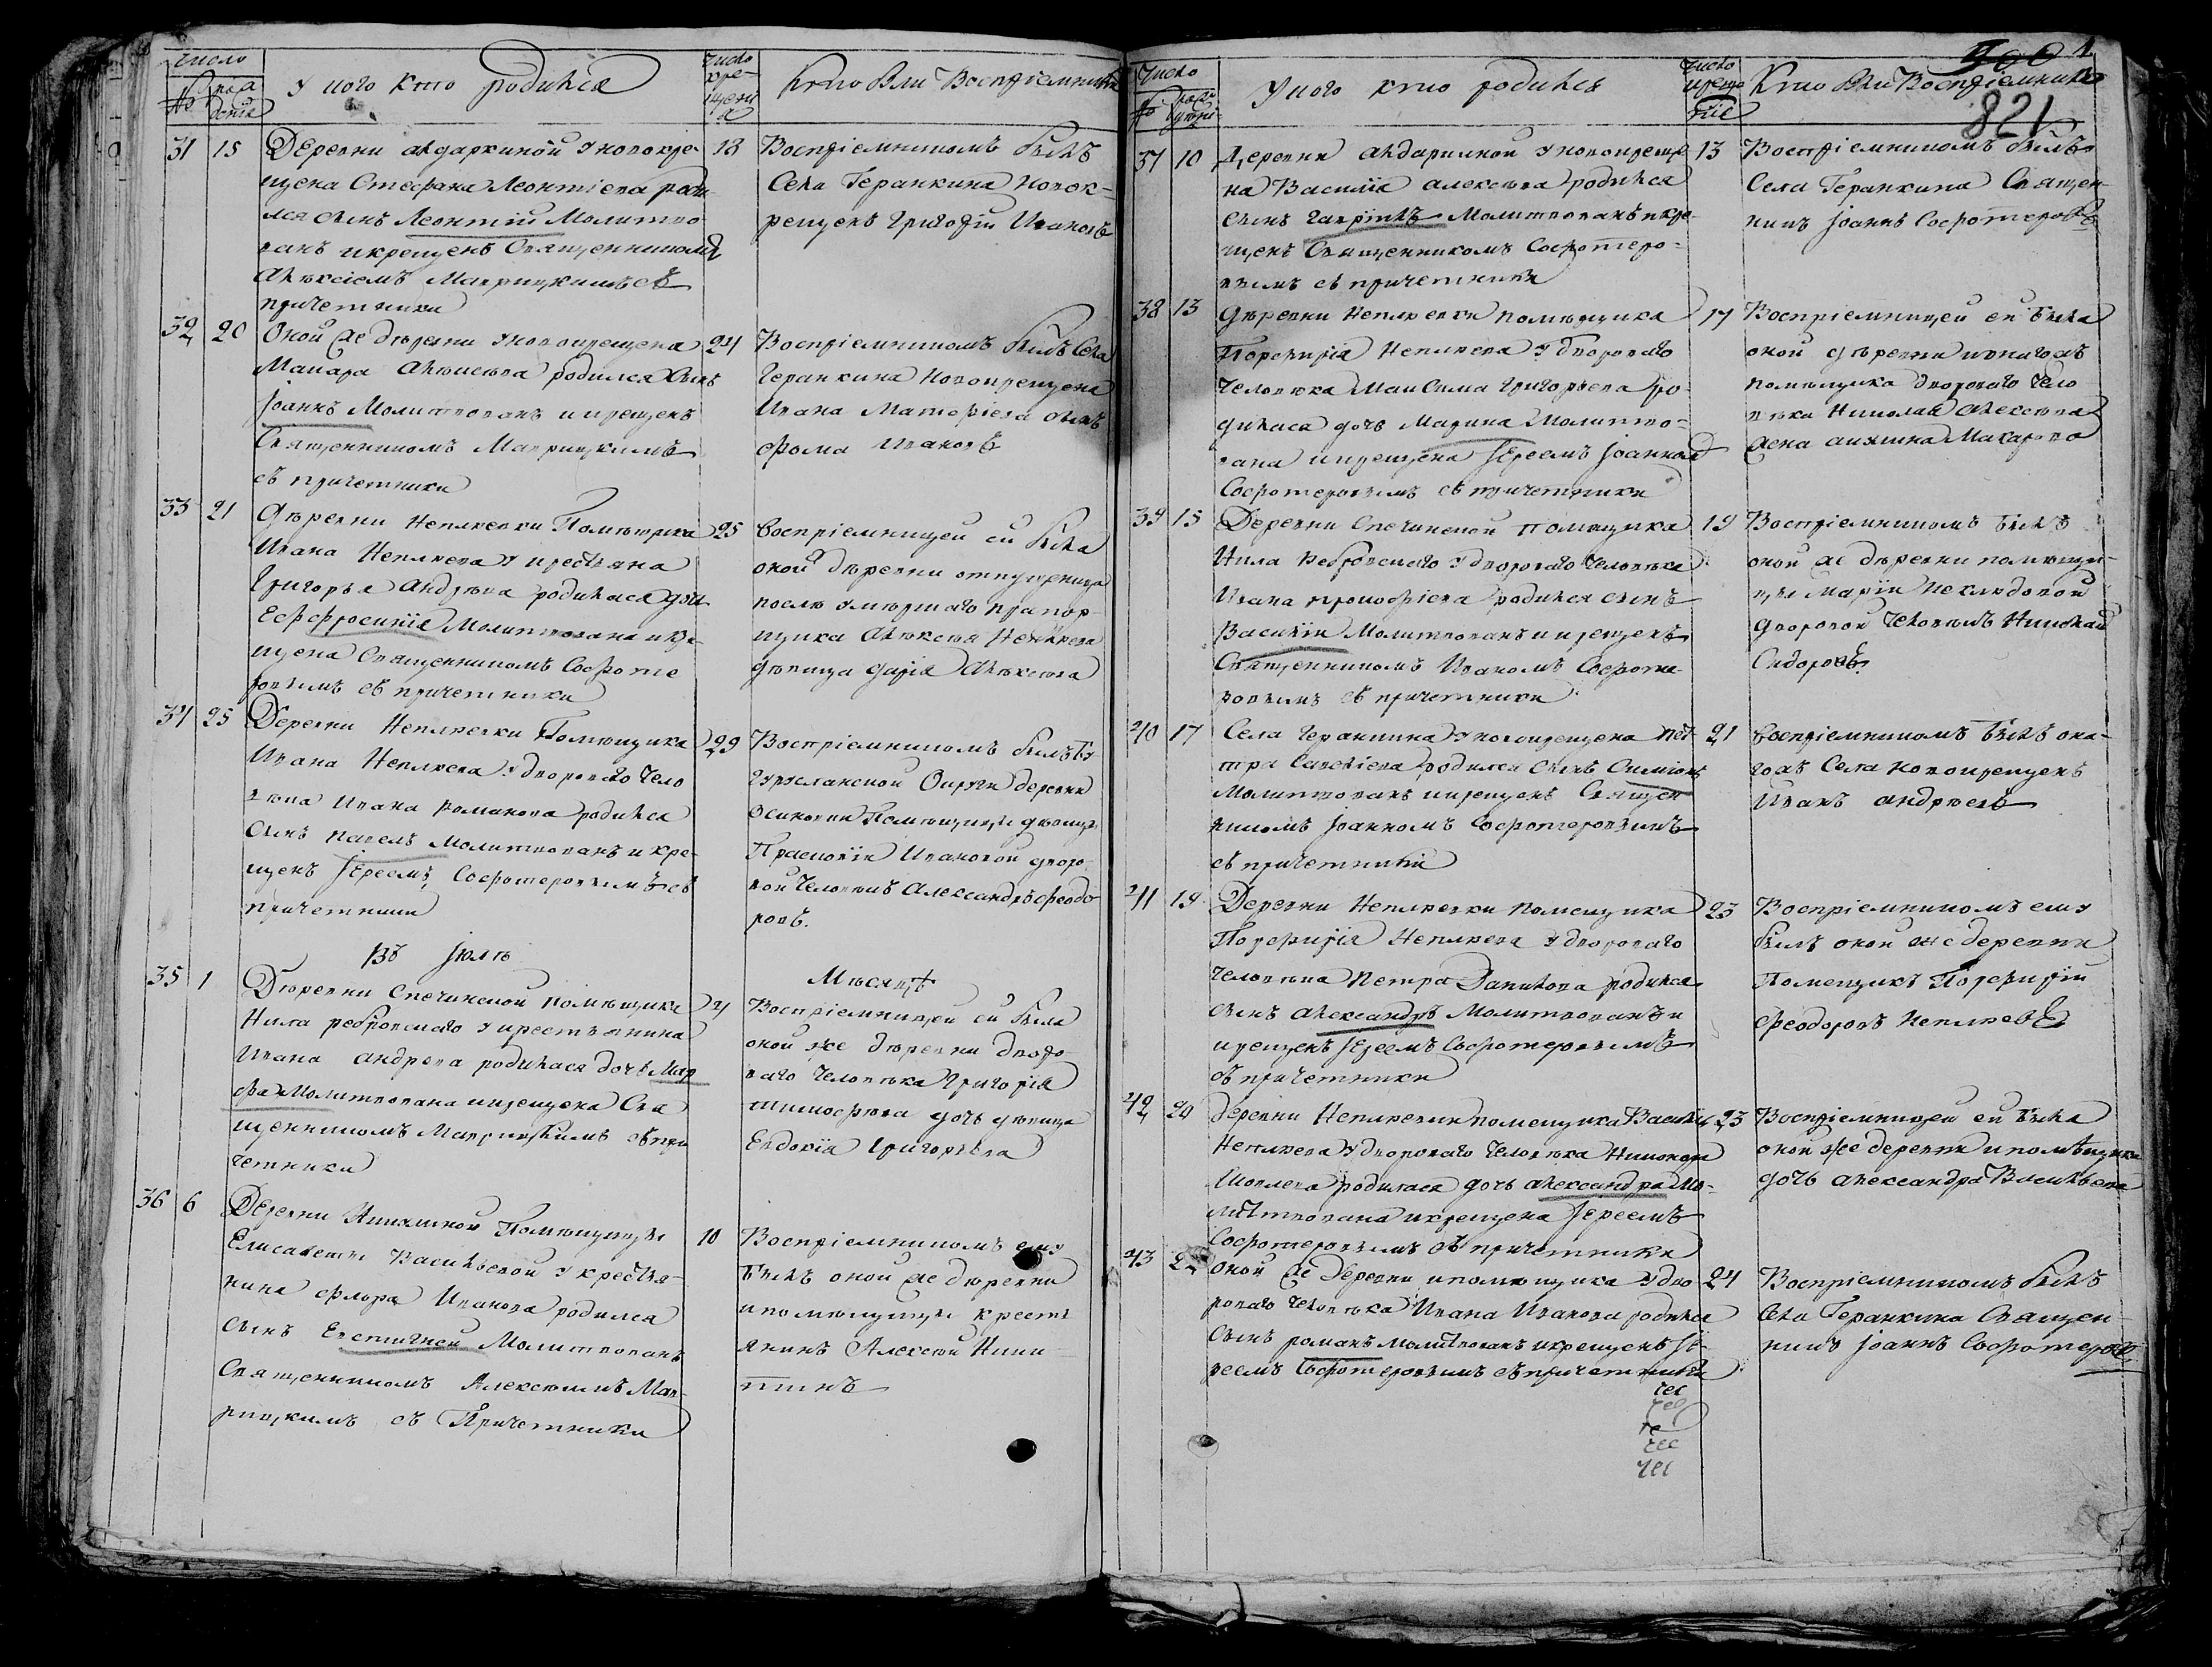 число
№ рождения
у кого кто родился
число крещения
Кто были Восприемники
31 15 Деревни Акдаркиной у новокре-
щена Стефана Леонтиева роди-
лся сынъ Леонтий Молитво-
ванъ и крещенъ Священникомъ
Алѣксіемъ Маврицкимъ съ
причетники
18 Воспріемникомъ былъ
Села Геранкина Новок-
рещенъ Григорій Ивановъ
32 20 Оной же дѣревни у новокрещена
Макара Алѣксѣева родился сынъ
Іоаннъ Молитвованъ и крещенъ
Священникомъ Маврицкимъ
съ причетники
24 Воспріемникомъ былъ Села
Геранкина Новокрещена
Ивана Матфіева сынъ
Фома Ивановъ
33 21 Дѣревни Неплюевки Помѣщика
Ивана Неплюева у крестьяна
Григорья Андрѣва родилася дочь
Еффросинія Молитвована и кре-
щена Священникомъ Софоте
ровымъ съ причетники
25 Воспріемницей ей была
оной дѣревни отпущеница
послѣ умершаго прапор
щика Алѣксѣя Неплюева
дѣвица Дарія Алѣксѣева
34 25 Деревни Неплюевки Помѣщика
Ивана Неплюева у двороваго чело
вѣка Ивана Романова родился
сынъ Павелъ Молитвованъ и кре-
щенъ Іереемъ Софотеровымъ съ
причетники
29 Воспріемникомъ былъ Бу-
гурусланской Округи деревни
Осиновки Помѣщицы дѣвицы
Прасковіи Ивановой дворо-
вой человѣкъ Александръ Феодо
ровъ.
Въ Іюлѣ
Мѣсяцѣ
35 1 Дѣревни Спечинской помѣщика
Нила Ребровскаго у крестьянина
Ивана Андрева родилася дочь Мар
фа Молитвована и крещена Свя
щенникомъ Маврицкимъ съ при
четники
4 Воспріемницей ей была
оной же дѣревни дворо-
ваго человѣка Григорія
Тимофѣева дочь дѣвица
Евдокія Григорьева
36 6 Деревни Помѣщицы
Елисаветы Васильевой у крестья-
нина Флора Иванова родился
сынъ Евстигней Молитвованъ
Священникомъ Алексѣемъ Мав-
рицкимъ съ Причетники
10 Воспріемникомъ ему
былъ оной же дѣревни
и помѣщицы крестъ
янинъ Алексѣй Ники-
тинъ
1
821
Число
№ рожденія
У кого кто родился
число крещеніе
Кто были Воспріемники
37 10 Деревни Акдаркиной у новокреще-
на Василія Алексѣва родился
сынъ Гавріилъ Молитвованъ и кре-
щенъ Священникомъ Софотеро-
вымъ съ причетники
13 Воспріемникомъ былъ
Села Геранкина Священ-
никъ Іоаннъ Софотеровъ
38 13 Дѣревни Неплюевки помѣщика
Порфирія Неплюева у двороваго
человѣка Максима Григорьева ро-
дилася дочь Марина Молитво-
вана и крещена Іереемъ Іоанномъ
Софотеровымъ съ причетники
17 Воспріемницей ей была
оной дѣревни и онагожъ
помѣщика двороваго чело
вѣка Николая Алексѣева
жена Макарова
39 15 Деревни Спечинской помѣщика
Нила Ребровскаго у двороваго человѣка
Ивана Прокофіева родился сынъ
Василій Молитвованъ и крещенъ
Священникомъ Иваномъ Софоте-
ровымъ съ причетники
19 Воспріемникомъ былъ
оной же дѣревни помѣщи-
цы Маріи Неклюдовой
дворовой человѣкъ Николай
Сидоровъ.
40 17 Села Геранкина у новокрещена Пе-
тра Савельева родился сынъ Симіонъ
Молитвованъ и крещенъ Священ
никомъ Іоанномъ Софотеровымъ
съ причетники
21 Воспріемникомъ былъ она-
гожъ Села новокрещенъ
Иванъ Андрѣевъ
41 19 Деревни Неплюевки Помещика
Порфирія Неплюева у двороваго
человѣка Петра Данилова родился
сынъ Александръ Молитвованъ и
крещенъ Іереемъ Софотеровымъ
съ причетники
23 Воспріемникомъ ему
былъ оной же деревни
Помещикъ Порфирій
Феодоровъ Неплюевъ
42 20 Деревни Неплюевки помещика Василія
Неплюева у двороваго человѣка Никонора
Иовлева родилася дочь Александра Мо-
литвована и крещена Іереемъ
Софотеровымъ съ причетники
23 Воспріемницей ей была
оной же деревни и помѣщика
дочь Александра Васильева
43 22 Оной же Деревни и помѣщика у дво
роваго человѣка Ивана Иванова родился
сынъ Романъ молитвованъ и крещенъ Іе-
реемъ Софотеровымъ съ причетники
24 Воспріемникомъ былъ
Села Геранкина Священ-
никъ Іоаннъ Софотеровъ